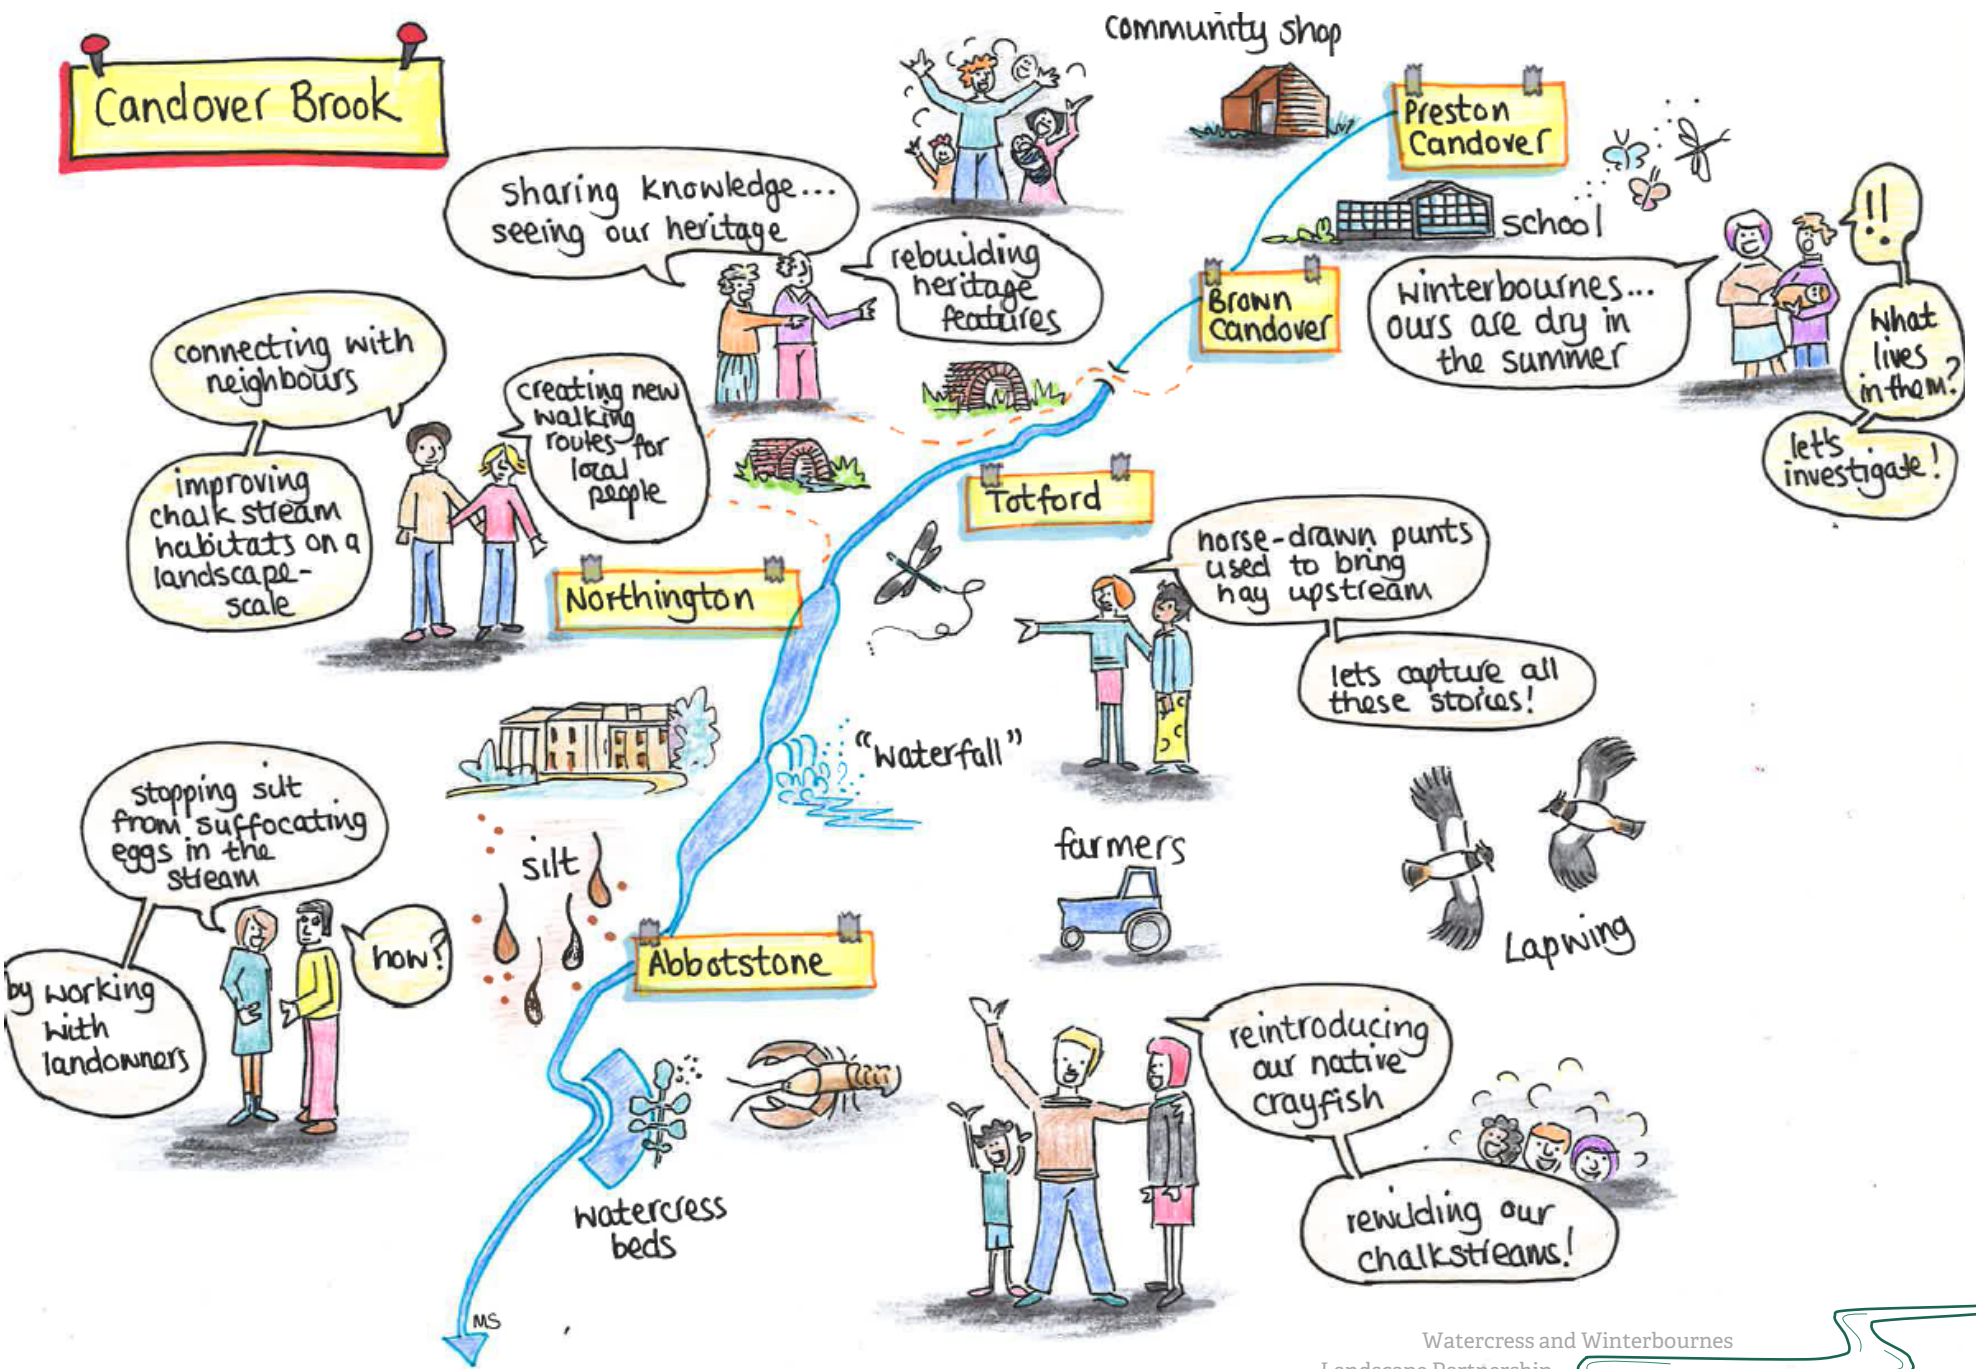 Candover Brook
community shop
Preston
Candover
school
sharing knowledge...
seeing our heritage
rebuilding
heritage
features
Brown
Candover
winterbournes...
ours are dry in
the summer
!!
what
lives
in them?
let's
investigate!
connecting with
neighbours
improving
chalk stream
habitats on a
landscape-
scale
creating new
walking
routes for
local
people
Totford
Northington
horse-drawn punts
used to bring
hay upstream
lets capture all
these stories!
"waterfall"
stopping silt
from suffocating
eggs in the
stream
how?
by working
with
landowners
silt
farmers
Lapwing
Abbotstone
reintroducing
our native
crayfish
rewilding our
chalkstreams!
watercress
beds
MS
Watercress and Winterbournes
Landscape Partnership